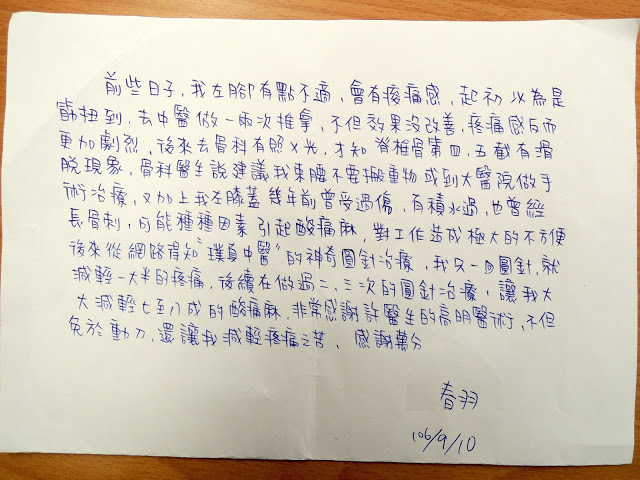 前些日子，我左腳有點不適，會有痠痛感，起初以為是
筋扭到，去中醫做一兩次推拿，不但效果沒改善，疼痛感反而
更加劇烈，後來去骨科有照X光，才知脊椎骨第四，五截有滑
脫現象，骨科醫生說建議我束腰不要搬重物或到大醫院做手
術治療，又加上我左膝蓋幾年前曾受過傷，有積水過，也曾經
長骨刺，可能種種因素引起酸痛麻，對工作造成極大的不方便
後來從網路得知"璞真中醫"的神奇圓針治療，我只一回圓針，就
減輕一大半的疼痛，後續在做過二、三次的圓針治療，讓我大
大減輕七至八成的酸痛麻，非常感謝許醫生的高明醫術，不但
免於動刀，還讓我減輕疼痛之苦， 感謝萬分
春羽
106/9/10